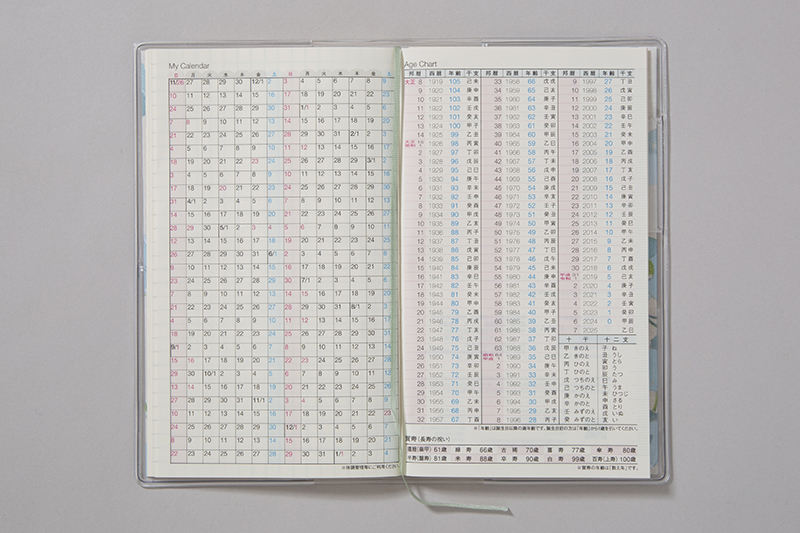 My Calendar
日 月 火 水 木 金 土 日 月 火 水 木 金 土
11/26 27 28 29 30 12/1 2 3 4 5 6 7 8 9
10 11 12 13 14 15 16 17 18 19 20 21 22 23
24 25 26 27 28 29 30 31 1/1 2 3 4 5 6
7 8 9 10 11 12 13 14 15 16 17 18 19 20
21 22 23 24 25 26 27 28 29 30 31 2/1 2 3
4 5 6 7 8 9 10 11 12 13 14 15 16 17
18 19 20 21 22 23 24 25 26 27 28 29 3/1 2
3 4 5 6 7 8 9 10 11 12 13 14 15 16
17 18 19 20 21 22 23 24 25 26 27 28 29 30
31 4/1 2 3 4 5 6 7 8 9 10 11 12 13
14 15 16 17 18 19 20 21 22 23 24 25 26 27
28 29 30 5/1 2 3 4 5 6 7 8 9 10 11
12 13 14 15 16 17 18 19 20 21 22 23 24 25
26 27 28 29 30 31 6/1 2 3 4 5 6 7 8
9 10 11 12 13 14 15 16 17 18 19 20 21 22
23 24 25 26 27 28 29 30 7/1 2 3 4 5 6
7 8 9 10 11 12 13 14 15 16 17 18 19 20
21 22 23 24 25 26 27 28 29 30 31 8/1 2 3
4 5 6 7 8 9 10 11 12 13 14 15 16 17
18 19 20 21 22 23 24 25 26 27 28 29 30 31
9/1 2 3 4 5 6 7 8 9 10 11 12 13 14
15 16 17 18 19 20 21 22 23 24 25 26 27 28
29 30 10/1 2 3 4 5 6 7 8 9 10 11 12
13 14 15 16 17 18 19 20 21 22 23 24 25 26
27 28 29 30 31 11/1 2 3 4 5 6 7 8 9
10 11 12 13 14 15 16 17 18 19 20 21 22 23
24 25 26 27 28 29 30 12/1 2 3 4 5 6 7
8 9 10 11 12 13 14 15 16 17 18 19 20 21
22 23 24 25 26 27 28 29 30 31 1/1 2 3 4
※体調管理等にご利用ください。
Age Chart
邦暦 西暦 年齢 干支 邦暦 西暦 年齢 干支 邦暦 西暦 年齢 干支
大正 8 1919 105 己未 33 1958 66 戊戌 9 1997 27 丁丑
9 1920 104 庚申 34 1959 65 己亥 10 1998 26 戊寅
10 1921 103 辛酉 35 1960 64 庚子 11 1999 25 己卯
11 1922 102 壬戌 36 1961 63 辛丑 12 2000 24 庚辰
12 1923 101 癸亥 37 1962 62 壬寅 13 2001 23 辛巳
13 1924 100 甲子 38 1963 61 癸卯 14 2002 22 壬午
14 1925 99 乙丑 39 1964 60 甲辰 15 2003 21 癸未
大正15 昭和 1 1926 98 丙寅 40 1965 59 乙巳 16 2004 20 甲申
2 1927 97 丁卯 41 1966 58 丙午 17 2005 19 乙酉
3 1928 96 戊辰 42 1967 57 丁未 18 2006 18 丙戌
4 1929 95 己巳 43 1968 56 戊申 19 2007 17 丁亥
5 1930 94 庚午 44 1969 55 己酉 20 2008 16 戊子
6 1931 93 辛未 45 1970 54 庚戌 21 2009 15 己丑
7 1932 92 壬申 46 1971 53 辛亥 22 2010 14 庚寅
8 1933 91 癸酉 47 1972 52 壬子 23 2011 13 辛卯
9 1934 90 甲戌 48 1973 51 癸丑 24 2012 12 壬辰
10 1935 89 乙亥 49 1974 50 甲寅 25 2013 11 癸巳
11 1936 88 丙子 50 1975 49 乙卯 26 2014 10 甲午
12 1937 87 丁丑 51 1976 48 丙辰 27 2015 9 乙未
13 1938 86 戊寅 52 1977 47 丁巳 28 2016 8 丙申
14 1939 85 己卯 53 1978 46 戊午 29 2017 7 丁酉
15 1940 84 庚辰 54 1979 45 己未 30 2018 6 戊戌
16 1941 83 辛巳 55 1980 44 庚申 平成31 令和 1 2019 5 己亥
17 1942 82 壬午 56 1981 43 辛酉 2 2020 4 庚子
18 1943 81 癸未 57 1982 42 壬戌 3 2021 3 辛丑
19 1944 80 甲申 58 1983 41 癸亥 4 2022 2 壬寅
20 1945 79 乙酉 59 1984 40 甲子 5 2023 1 癸卯
21 1946 78 丙戌 60 1985 39 乙丑 6 2024 0 甲辰
22 1947 77 丁亥 61 1986 38 丙寅 7 2025 乙巳
23 1948 76 戊子 62 1987 37 丁卯
24 1949 75 己丑 63 1988 36 戊辰
25 1950 74 庚寅 昭和64 平成 1 1989 35 己巳
26 1951 73 辛卯 2 1990 34 庚午
27 1952 72 壬辰 3 1991 33 辛未
28 1953 71 癸巳 4 1992 32 壬申
29 1954 70 甲午 5 1993 31 癸酉
30 1955 69 乙未 6 1994 30 甲戌
31 1956 68 丙申 7 1995 29 乙亥
32 1957 67 丁酉 8 1996 28 丙子
十 干 十二支
甲 きのえ 子 ね
乙 きのと 丑 うし
丙 ひのえ 寅 とら
丁 ひのと 卯 う
戊 つちのえ 辰 たつ
己 つちのと 巳 み
庚 かのえ 午 うま
辛 かのと 未 ひつじ
壬 みずのえ 申 さる
癸 みずのと 酉 とり
戌 いぬ
亥 い
※「年齢」は誕生日以降の満年齢です。誕生日前の方は「年齢」から1歳を引いてください。
賀寿（長寿の祝い）
還暦(華甲) 61歳 緑 寿 66歳 古 稀 70歳 喜 寿 77歳 傘 寿 80歳
半寿(盤寿) 81歳 米 寿 88歳 卒 寿 90歳 白 寿 99歳 百寿(上寿) 100歳
※賀寿の年齢は「数え年」です。